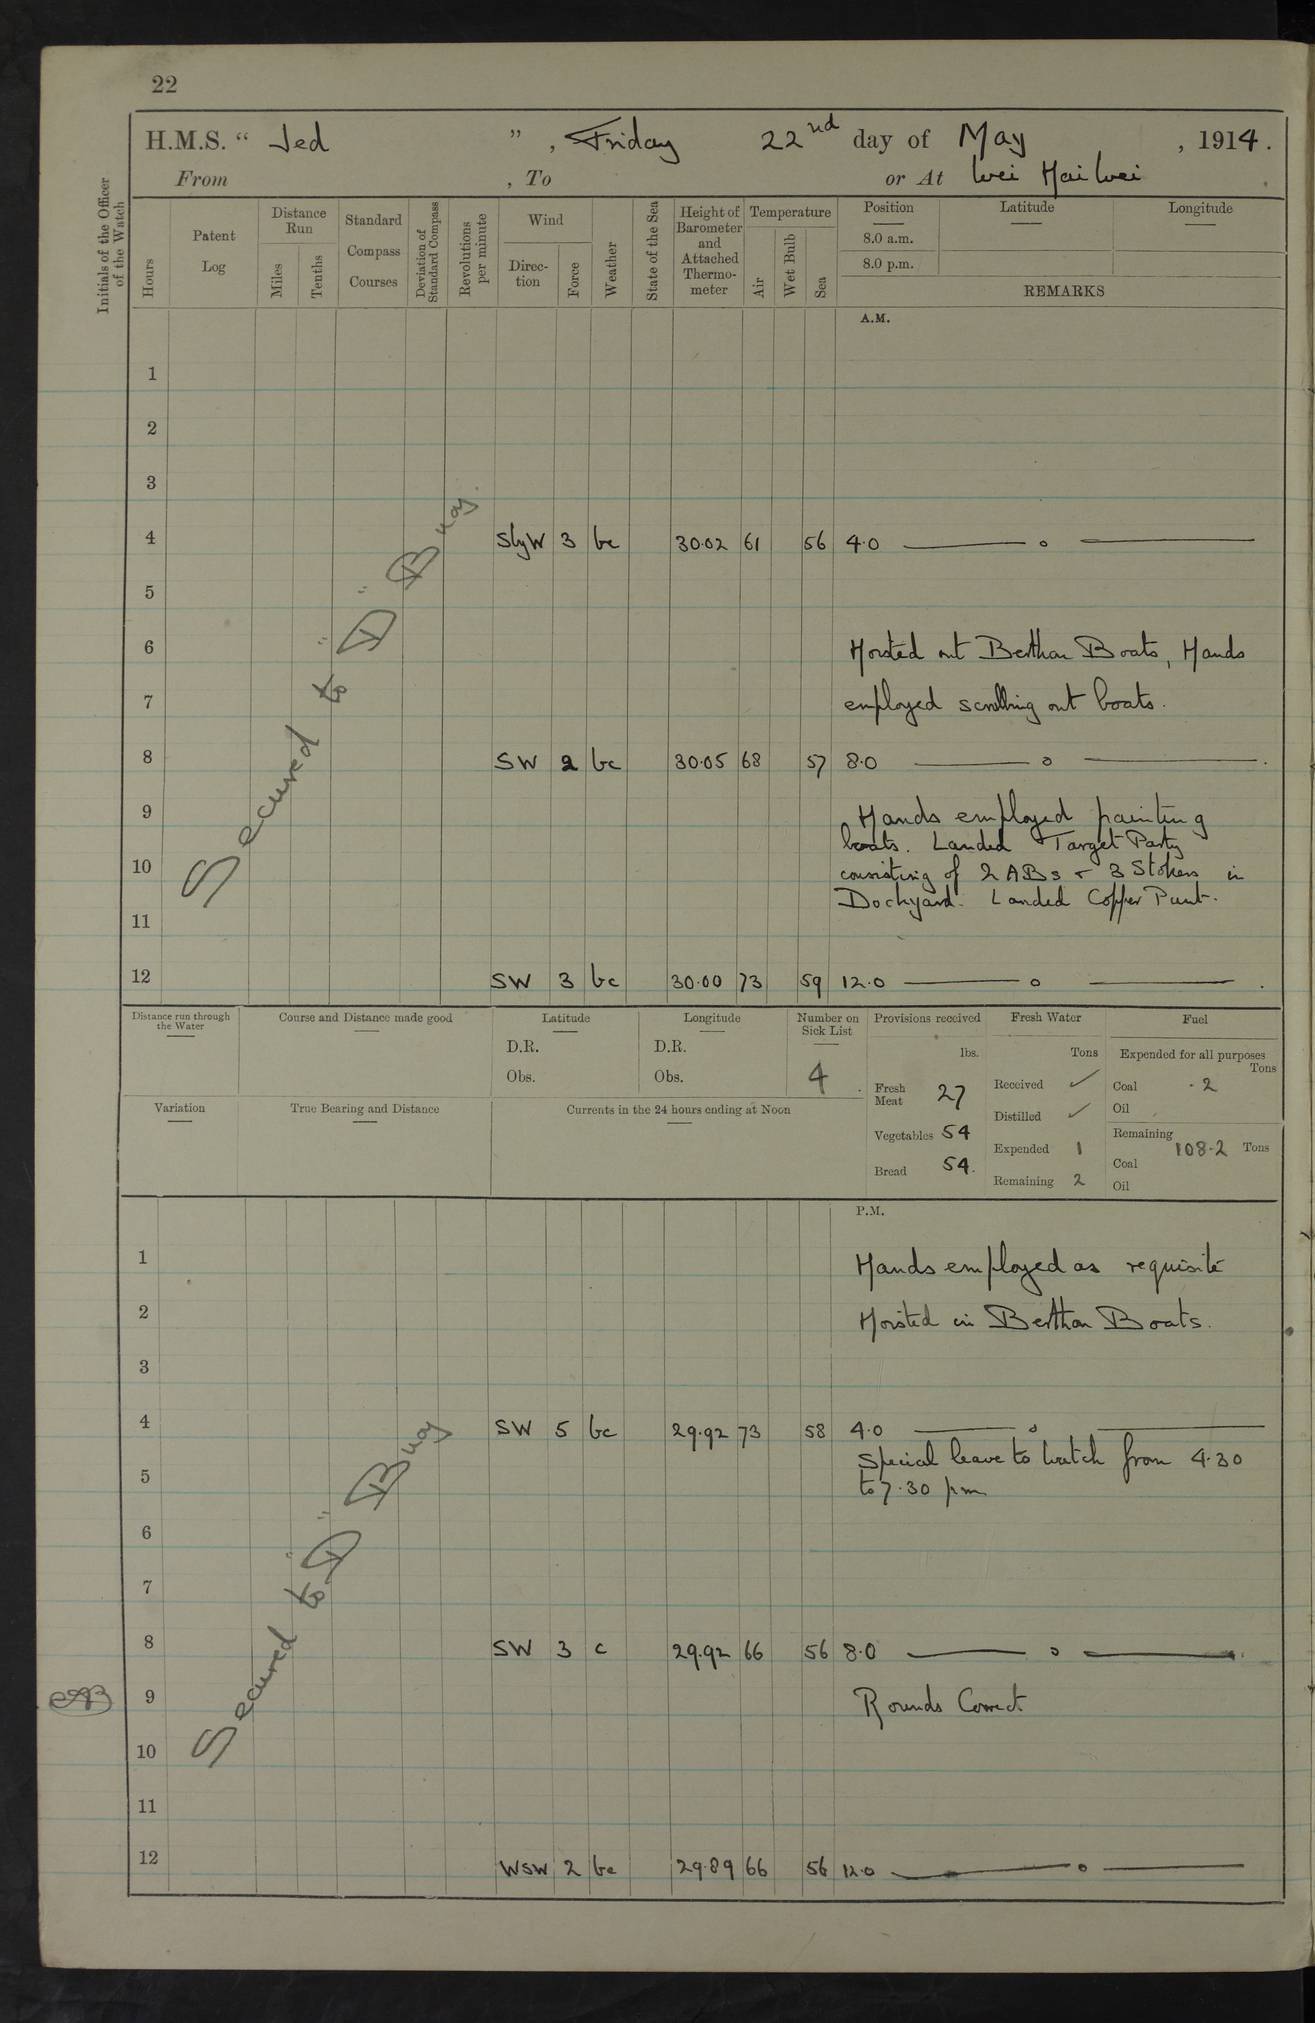 22
H.M.S. “ Jed ”, Friday 22nd day of May, 1914.
From , To or At Wei Hai Wei
Initials of the Officer of the Watch
Hours
Patent Log
Distance Run
Miles
Tenths
Standard Compass Courses
Deviation of Standard Compass
Revolutions per minute
Wind
Direction
Force
Weather
State of the Sea
Height of Barometer and Attached Thermometer
Temperature
Air
Wet Bulb
Sea
Position Latitude Longitude
8.0 a.m.
8.0 p.m.
REMARKS
A.M.
1
2
3
4 SbyW 3 bc 30.02 61 56 4.0 — o —
5
6 Hoisted out Berthon Boats, Hands
7 employed scrubbing out boats.
8 SW 2 bc 30.05 68 57 8.0 — o —
9 Hands employed painting
boats. Landed Target Party
10 consisting of 2 ABs + 3 Stokers in
Dockyard. Landed Copper Punt.
11
12 SW 3 bc 30.00 73 59 12.0 — o —
Secured to "D" Buoy.
Distance run through the Water
Course and Distance made good
Latitude
D.R.
Obs.
Longitude
D.R.
Obs.
Number on Sick List
4
Provisions received
lbs.
Fresh Meat 27
Vegetables 54
Bread 54.
Fresh Water
Tons
Received ✓
Distilled ✓
Expended 1
Remaining 2
Fuel
Expended for all purposes
Tons
Coal .2
Oil
Remaining 108.2 Tons
Coal
Oil
Variation
True Bearing and Distance
Currents in the 24 hours ending at Noon
P.M.
1 Hands employed as requisite
2 Hoisted in Berthon Boats.
3
4 SW 5 bc 29.92 73 58 4.0 — o —
Special leave to watch from 4.30
5 to 7.30 pm
6
7
8 SW 3 c 29.92 66 56 8.0 — o —
9 Rounds Correct
10
11
12 WSW 2 bc 29.89 66 56 12.0 — o —
Secured to "D" Buoy